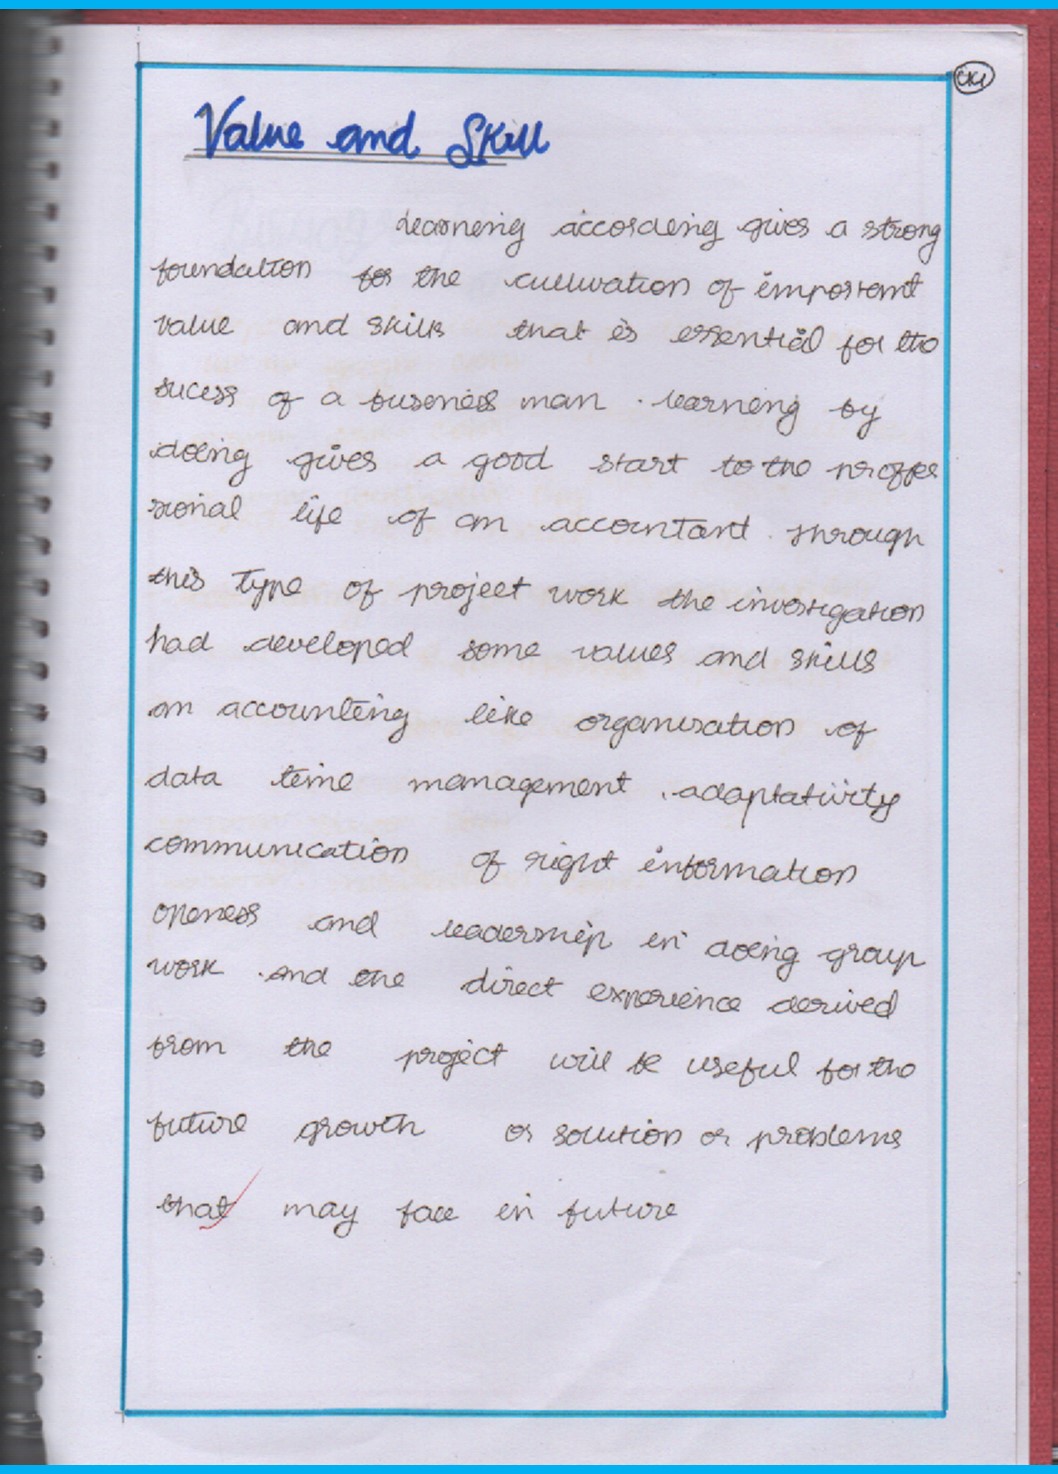 Value and Skill
Learning accordeing gives a strong
foundation for the cultivation of important
value and skills that is essential for the
sucess of a business man . learning by
doing gives a good start to the proffes
sional life of an accountant . Through
this type of project work the investigation
had developed some values and skills
an accounting like organisation of
data time management , adaptativity
communication of right information
openess and leadership in doing group
work . and the direct experience derived
from the project will be useful for the
future growth or solution or problems
that may face in future